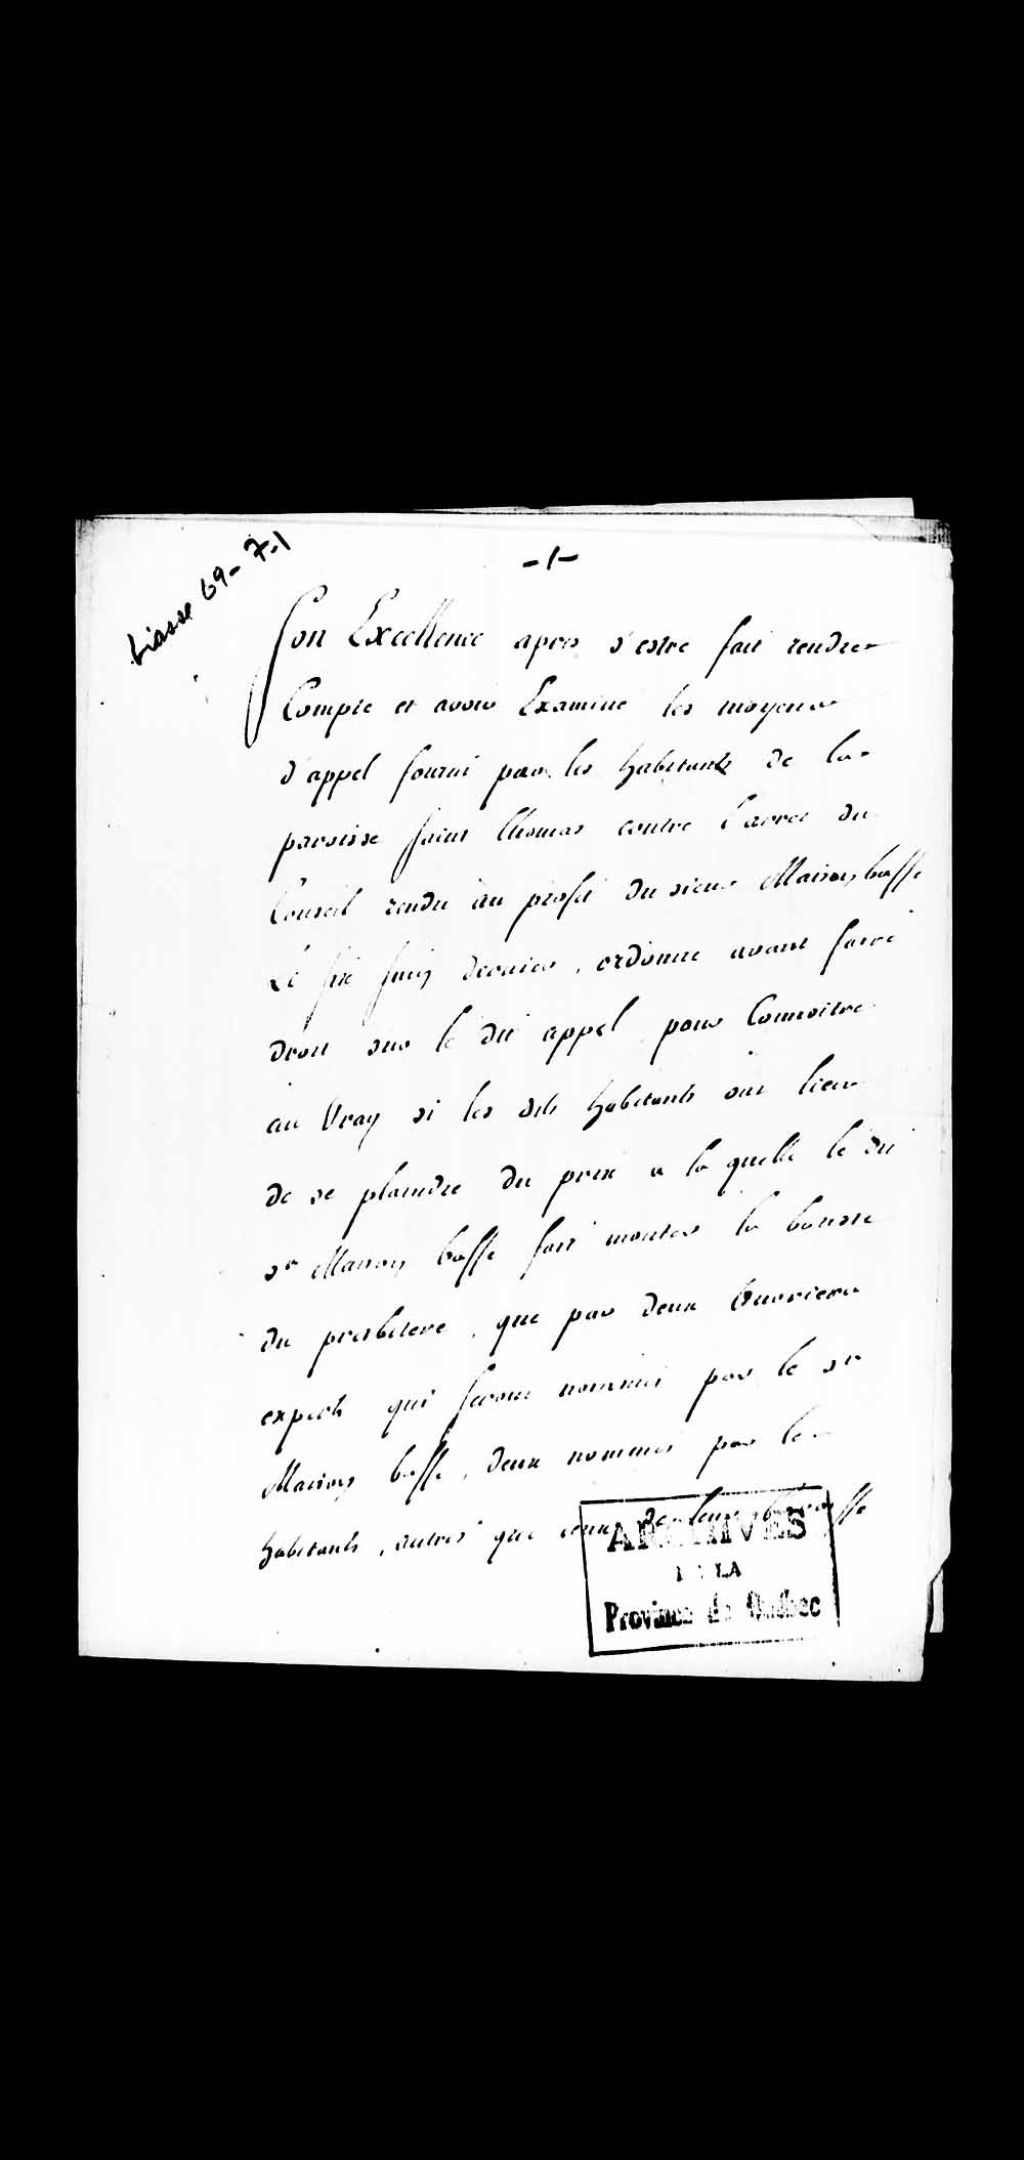 Liasse 69-7-1
-1-
Son Excellence apres s'estre fait rendre
Compte et avoir Examiné les moyens
d'appel fourni par les habitants de la
paroisse saint thomas contre l'arret du
Conseil rendu au profit du sieur Maison basse
Le six juin dernier, ordonne avant faire
droit sur le dit appel pour Connoitre
au vray si les dits habitants ont lieu
de se plaindre du prix a la quelle le dit
sr Maison basse fait monter la batisse
du presbitere, que par deux Ouvriers
experts qui seront nommés par le sr
Maison basse, deux nommés par les
habitants, autres que ceux de leur paroisse
ARCHIVES
DE LA
Province de Québec